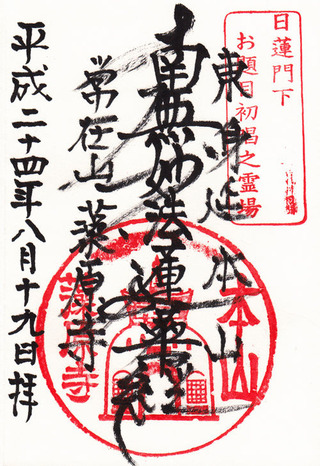 日蓮門下
お題目初唱之霊場
東身延 本山
南無妙法蓮華経
常在山 藻源寺
平成二十四年八月十九日拝
本山
藻原寺